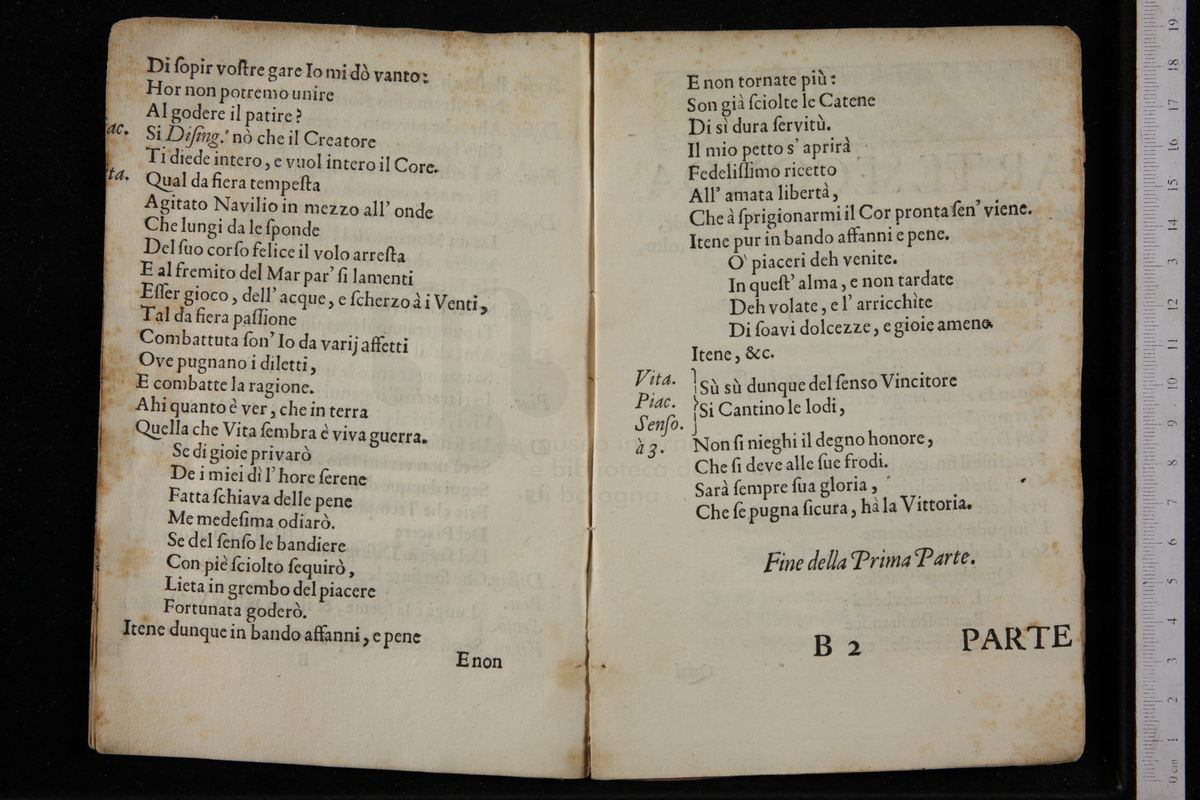 Di ſopir voſtre gare Io mi dò vanto:
Hor non potremo unire
Al godere il patire?
ac. Si Diſing.º nò che il Creatore
Ti diede intero, e vuol intero il Core.
ta. Qual da fiera tempeſta
Agitato Navilio in mezzo all' onde
Che lungi da le ſponde
Del ſuo corſo felice il volo arreſta
E al fremito del Mar par' ſi lamenti
Eſſer gioco, dell' acque, e ſcherzo à i Venti,
Tal da fiera paſſione
Combattuta ſon' Io da varij affetti
Ove pugnano i diletti,
E combatte la ragione.
Ahi quanto è ver, che in terra
Quella che Vita ſembra è viva guerra.
Se di gioie privarò
De i miei dì l' hore ſerene
Fatta ſchiava delle pene
Me medeſima odiarò.
Se del ſenſo le bandiere
Con piè ſciolto ſequirò,
Lieta in grembo del piacere
Fortunata goderò.
Itene dunque in bando affanni, e pene
E non
E non tornate più:
Son già ſciolte le Catene
Di sì dura ſervitù.
Il mio petto s' aprirà
Fedeliſſimo ricetto
All' amata libertà,
Che à ſprigionarmi il Cor pronta ſen' viene.
Itene pur in bando affanni e pene.
O' piaceri deh venite.
In queſt' alma, e non tardate
Deh volate, e l' arricchite
Di ſoavi dolcezze, e gioie amene
Itene, &c.
Vita. Sù sù dunque del ſenſo Vincitore
Piac. Si Cantino le lodi,
Senſo.
à 3. Non ſi nieghi il degno honore,
Che ſi deve alle ſue frodi.
Sarà ſempre ſua gloria,
Che ſe pugna ſicura, hà la Vittoria.
Fine della Prima Parte.
B 2 PARTE